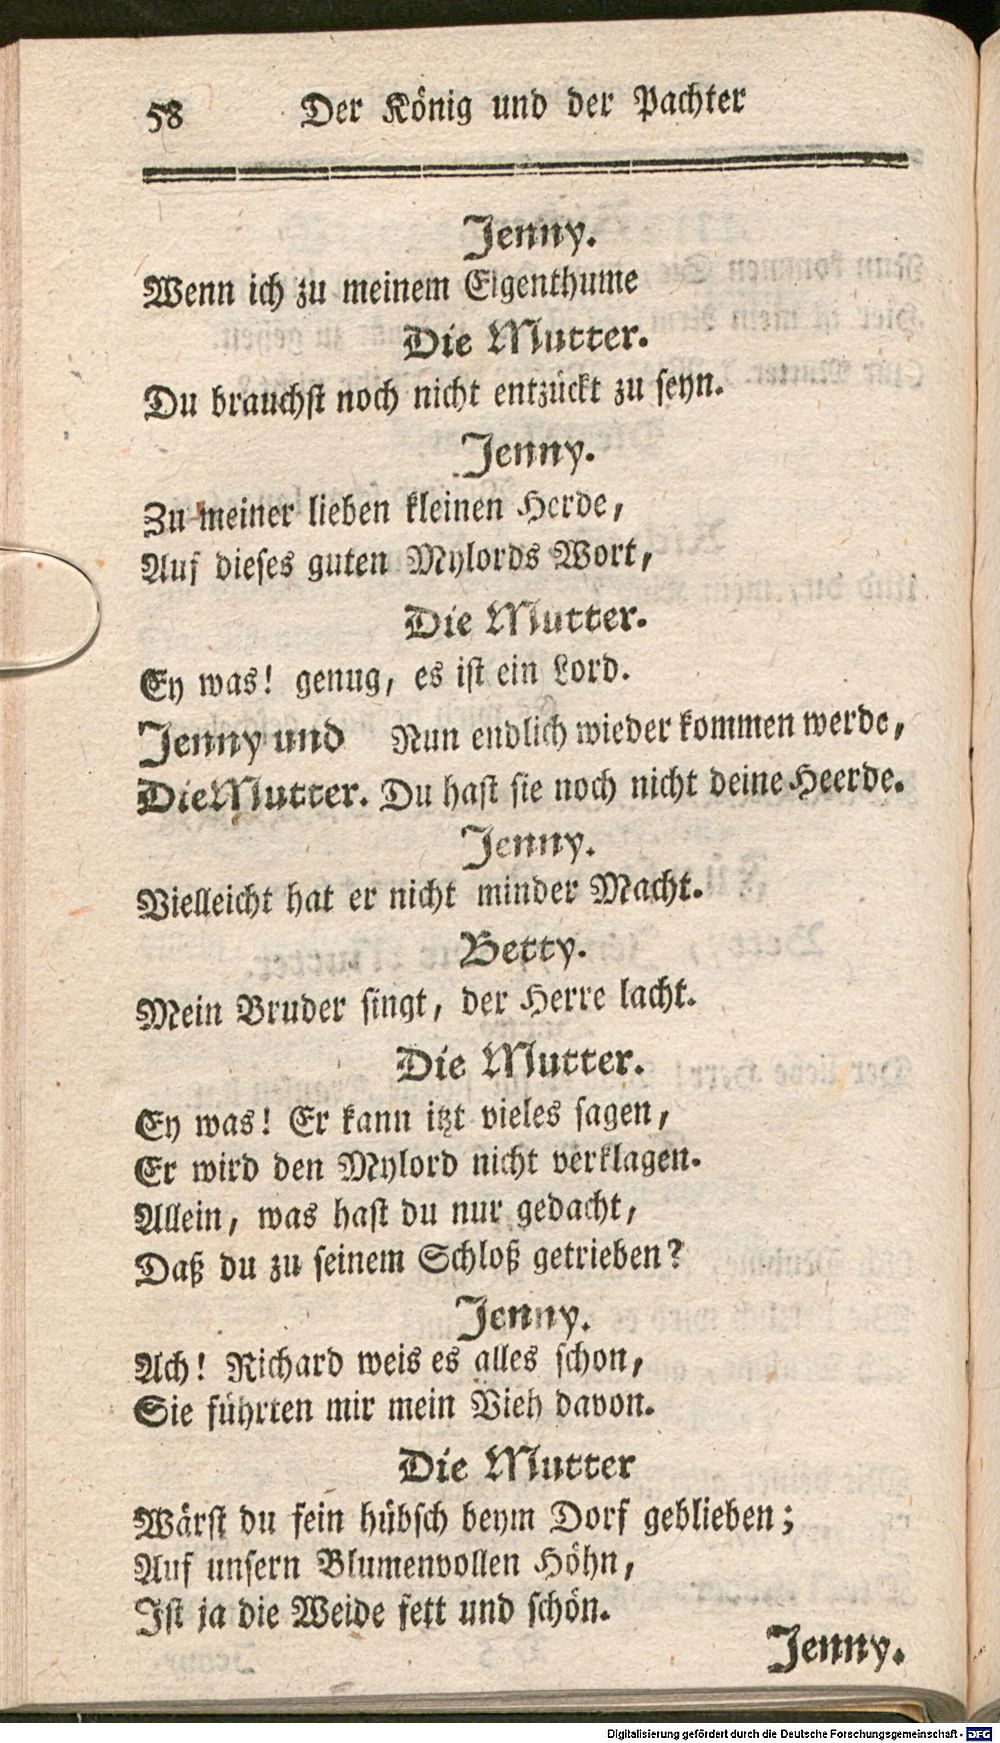 58 Der König und der Pachter
Jenny.
Wenn ich zu meinem Eigenthume
Die Mutter.
Du brauchst noch nicht entzückt zu seyn.
Jenny.
Zu meiner lieben kleinen Herde,
Auf dieses guten Mylords Wort,
Die Mutter.
Ey was! genug, es ist ein Lord.
Jenny und Nun endlich wieder kommen werde,
Die Mutter. Du hast sie noch nicht deine Heerde.
Jenny.
Vielleicht hat er nicht minder Macht.
Betty.
Mein Bruder singt, der Herre lacht.
Die Mutter.
Ey was! Er kann itzt vieles sagen,
Er wird den Mylord nicht verklagen.
Allein, was hast du nur gedacht,
Daß du zu seinem Schloß getrieben?
Jenny.
Ach! Richard weis es alles schon,
Sie führten mir mein Vieh davon.
Die Mutter
Wärst du fein hübsch beym Dorf geblieben;
Auf unsern Blumenvollen Höhn,
Ist ja die Weide fett und schön.
Jenny.
Digitalisierung gefördert durch die Deutsche Forschungsgemeinschaft - DFG